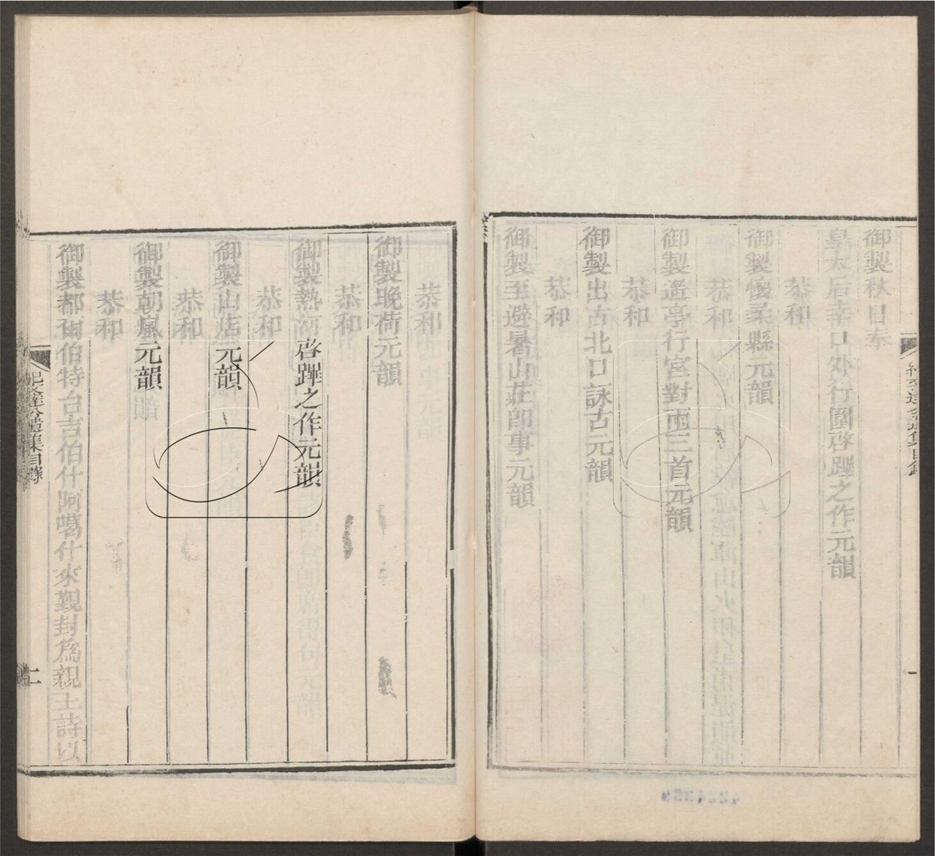 御製秋日奉
皇太后幸口外行圍啓蹕之作元韻
恭和
御製懷柔縣元韻
恭和
御製遙亭行宮對雨三首元韻
恭和
御製出古北口詠古元韻
恭和
御製至避暑山莊卽事元韻
恭和
御製晚荷元韻
恭和
御製熱河啓蹕之作元韻
恭和
御製山店元韻
恭和
御製朝嵐元韻
恭和
御製都爾伯特台吉伯什阿噶什來覲封為親王詩以
紀文達公遺集目錄
二